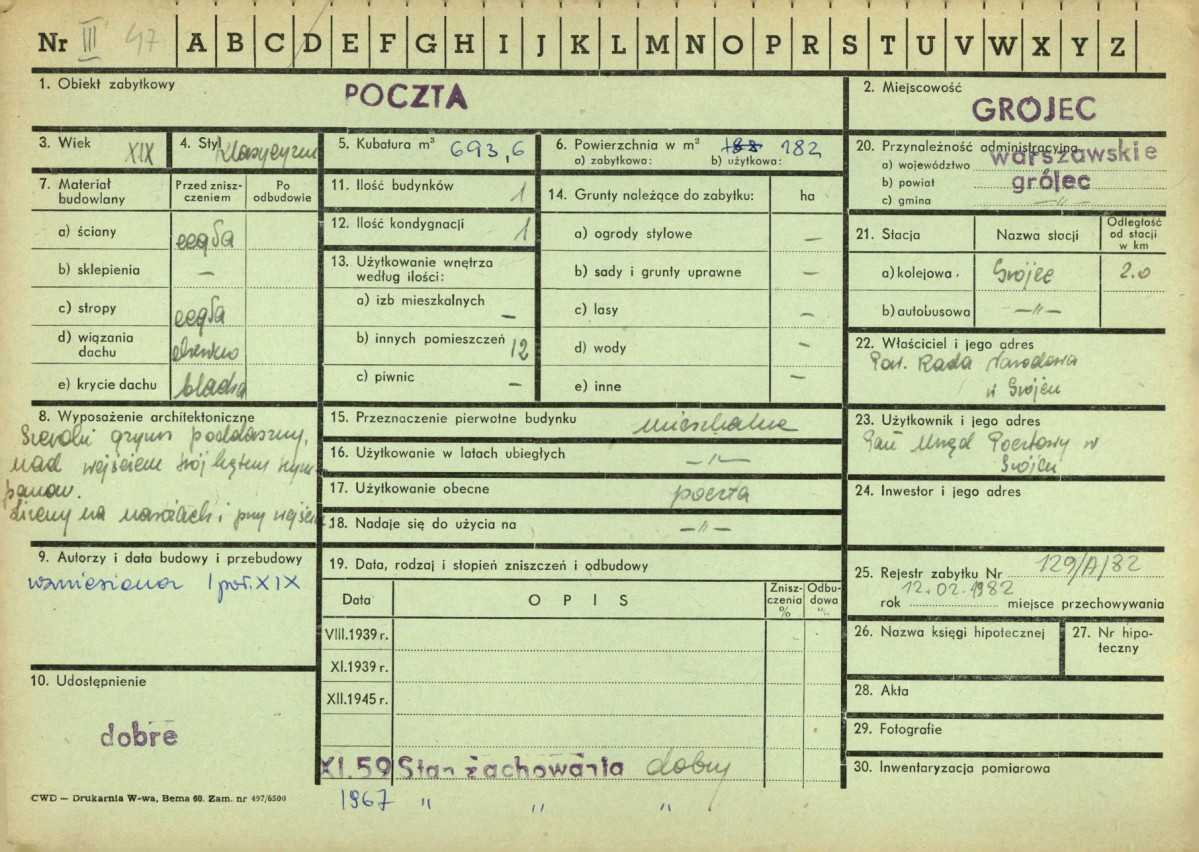 Nr III 47 A B C D E F G H I J K L M N O P R S T U V W X Y Z
1. Obiekt zabytkowy
POCZTA
2. Miejscowość
GRÓJEC
3. Wiek XIX
4. Styl klasycyzm
5. Kubatura m³ 693,6
6. Powierzchnia w m² 188 182
a) zabytkowa: b) użytkowa:
20. Przynależność administracyjna
a) województwo warszawskie
b) powiat grójec
c) gmina —"—
7. Materiał budowlany
Przed zniszczeniem
Po odbudowie
a) ściany cegła
b) sklepienia —
c) stropy cegła
d) wiązania dachu drewno
e) krycie dachu blacha
11. Ilość budynków 1
12. Ilość kondygnacji 1
13. Użytkowanie wnętrza
według ilości:
a) izb mieszkalnych —
b) innych pomieszczeń 12
c) piwnic —
14. Grunty należące do zabytku: ha
a) ogrody stylowe —
b) sady i grunty uprawne —
c) lasy —
d) wody —
e) inne —
21. Stacja
Nazwa stacji
Odległość
od stacji
w km
a) kolejowa Grójec 2.0
b) autobusowa —"—
22. Właściciel i jego adres
Pow. Rada Narodowa
w Grójcu
8. Wyposażenie architektoniczne
Szeroki gzyms poddaszny,
nad wejściem trójkątny tympanon.
Lizeny na narożach i przy wejściu
15. Przeznaczenie pierwotne budynku mieszkalne
16. Użytkowanie w latach ubiegłych —"—
17. Użytkowanie obecne poczta
18. Nadaje się do użycia na —"—
23. Użytkownik i jego adres
Urząd Pocztowy w
Grójcu
24. Inwestor i jego adres
9. Autorzy i data budowy i przebudowy
wzniesiona I poł. XIX
19. Data, rodzaj i stopień zniszczeń i odbudowy
Data
OPIS
Zniszczenia %
Odbudowa %
VIII.1939 r.
XI.1939 r.
XII.1945 r.
XI.59 Stan zachowania dobry
1967 " " "
25. Rejestr zabytku Nr 129/A/82
12.02.1982
rok miejsce przechowywania
26. Nazwa księgi hipotecznej
27. Nr hipoteczny
10. Udostępnienie
dobre
28. Akta
29. Fotografie
30. Inwentaryzacja pomiarowa
CWD — Drukarnia W-wa, Bema 60. Zam. nr 497/6500